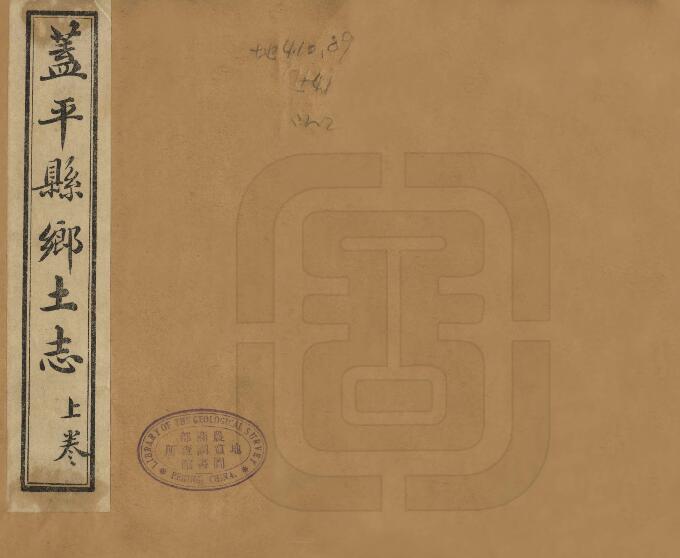 蓋平縣鄉土志
上卷
地4.10,89
LIBRARY OF THE GEOLOGICAL SURVEY
農商部
地質調查所
圖書館
PEKING, CHINA.